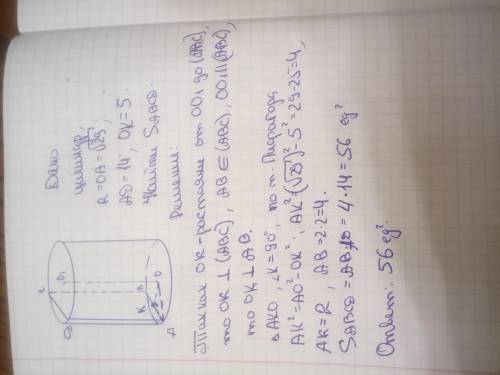 Дано:
цилиндр,
R=OA=√29,
AD=14, OK=5.
Найти SABCD.
Решение:
Так как OK-растояние от OO1 до (ABC),
то OK⊥(ABC), AB∈(ABC), OO1||(ABC),
то OK⊥AB.
▵AKO, ∠K=90°, по т. Пифагора
AK²=AO²-OK², AK²=(√29)²-5²=29-25=4,
AK=2, AB=2·2=4.
SABCD=AB·AD=4·14=56 ед².
Ответ: 56 ед².
C
O1
D
B
K
O
A